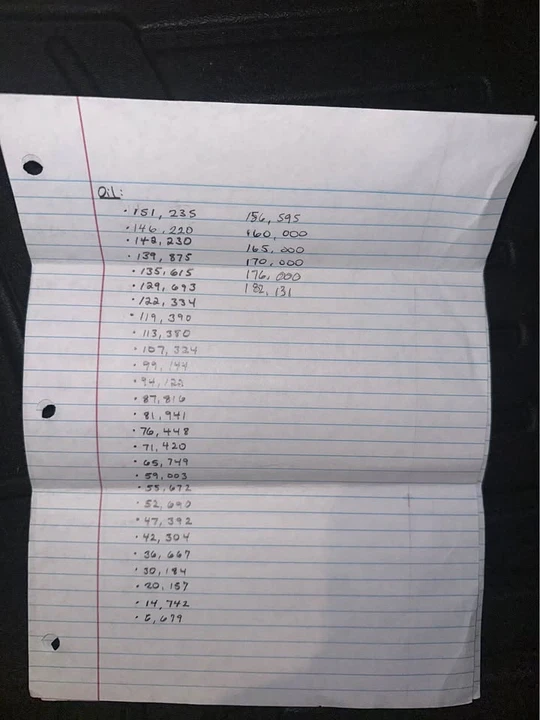 Oil:
· 151, 235
· 146, 220
· 142, 230
· 139, 875
· 135, 615
· 129, 693
· 122, 334
· 119, 390
· 113, 380
· 107, 324
· 99, 144
· 94, 122
· 87, 816
· 81, 941
· 76, 448
· 71, 420
· 65, 749
· 59, 003
· 55, 672
· 52, 690
· 47, 392
· 42, 304
· 36, 667
· 30, 184
· 20, 157
· 14, 742
156, 595
160, 000
165, 000
170, 000
176, 000
182, 131